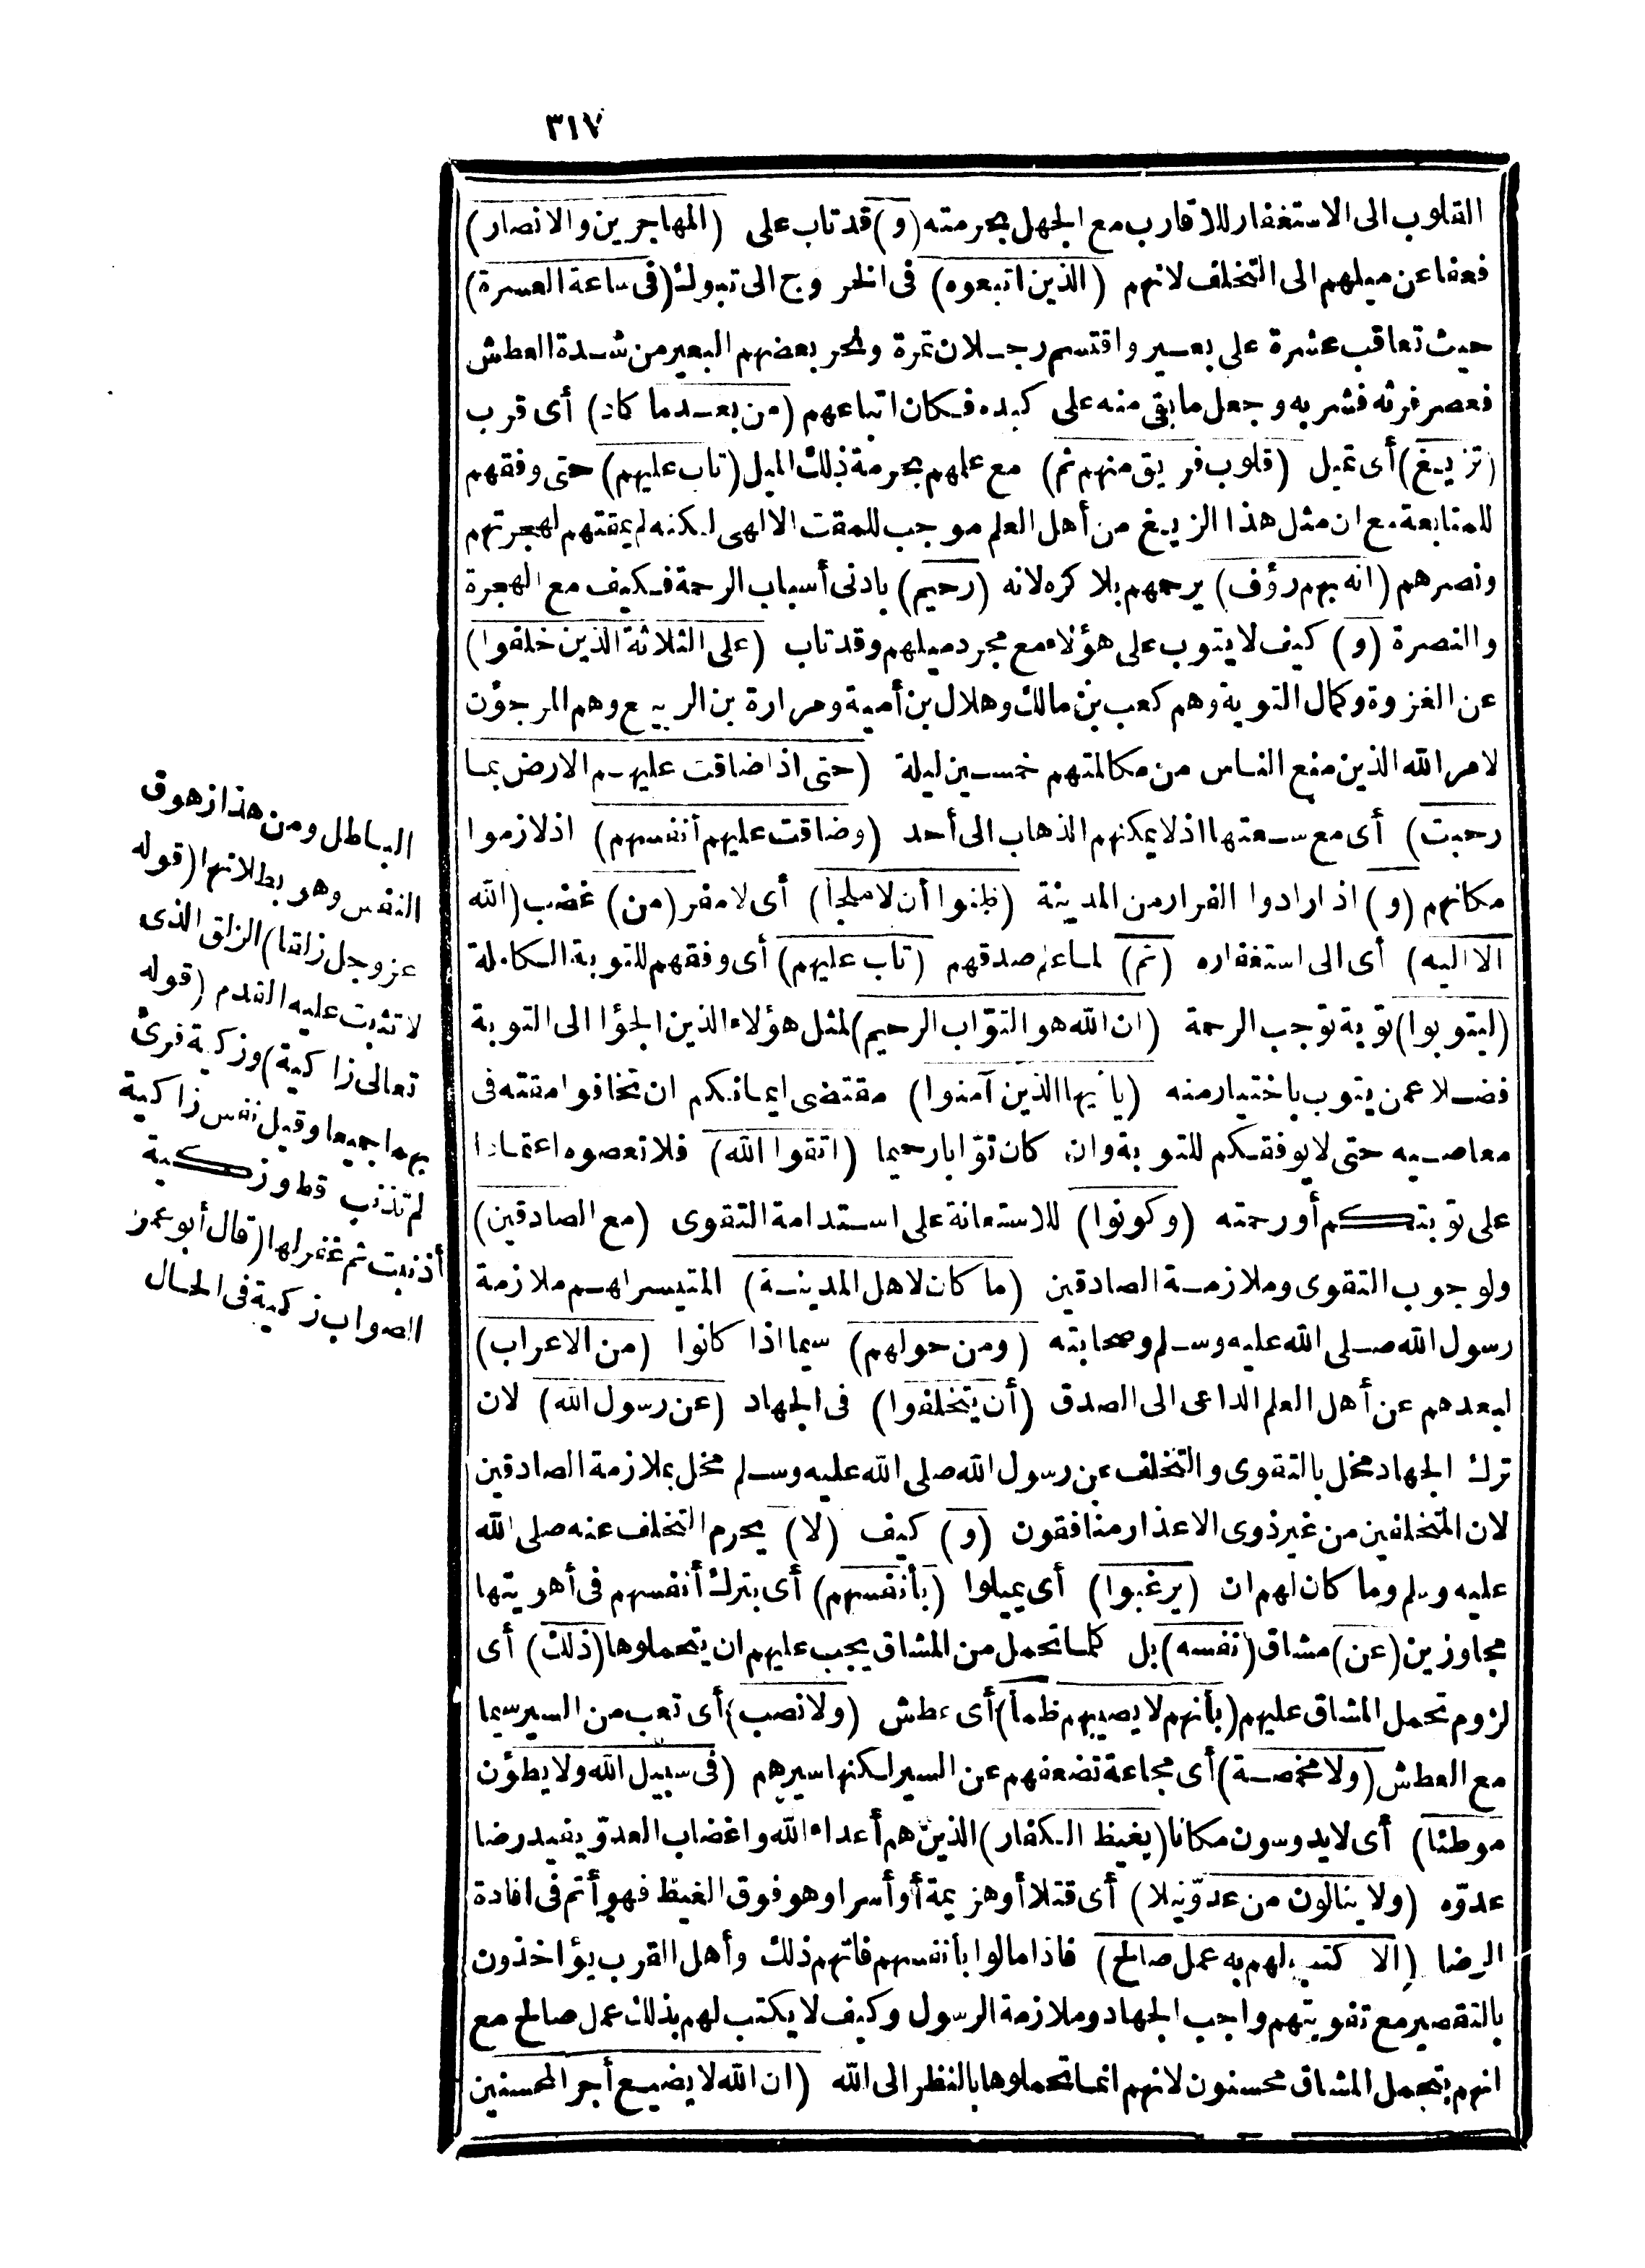 ٣١٧
القلوب الى الاستغفار للاقارب مع الجهل بحرمته (و) قد تاب على (المهاجرين والانصار)
فعفا عن ميلهم الى التخلف لانهم (الذين اتبعوه) فى الخروج الى تبوك (فى ساعة العسرة)
حيث تعاقب عشرة على بعير واقتسم رجلان تمرة ونحر بعضهم البعير من شدة العطش
فعصر فرثه فشربه وجعل ما بقى منه على كبده فكان اتباعهم (من بعد ما كاد) أى قرب
(تزيغ) أى تميل (قلوب فريق منهم ثم) مع علمهم بحرمة ذلك الميل (تاب عليهم) حتى وفقهم
للمتابعة مع ان مثل هذا الزيغ من أهل العلم موجب للمقت الالهى لكنه لم يمقتهم لهجرتهم
ونصرهم (انه بهم رؤف) يرحمهم بلا كره لانه (رحيم) بادنى أسباب الرحمة فكيف مع الهجرة
والنصرة (و) كيف لا يتوب على هؤلاء مع مجرد ميلهم وقد تاب (على الثلاثة الذين خلفوا)
عن الغزوة وكمال التوبة وهم كعب بن مالك وهلال بن أمية ومرارة بن الربيع وهم المرجؤن
لامر الله الذين منع الناس من مكالمتهم خمسين ليلة (حتى اذا ضاقت عليهم الارض بما
رحبت) أى مع سعتها اذ لا يمكنهم الذهاب الى أحد (وضاقت عليهم أنفسهم) اذ لازموا
مكانهم (و) اذ ارادوا الفرار من المدينة (ظنوا أن لا ملجأ) أى لا مفر (من) غضب (الله
الا اليه) أى الى استغفاره (ثم) لما علم صدقهم (تاب عليهم) أى وفقهم للتوبة الكاملة
(ليتوبوا) توبة توجب الرحمة (ان الله هو التوّاب الرحيم) لمثل هؤلاء الذين الجؤا الى التوبة
فضلا عمن يتوب باختيار منه (يا أيها الذين آمنوا) مقتضى ايمانكم ان تخافوا مقته فى
معاصيه حتى لا يوفقكم للتوبة وان كان توّابا رحيما (اتقوا الله) فلا تعصوه اعتمادا
على توبتكم أو رحمته (وكونوا) للاستعانة على استدامة التقوى (مع الصادقين)
ولوجوب التقوى وملازمة الصادقين (ما كان لاهل المدينة) المتيسر لهم ملازمة
رسول الله صلى الله عليه وسلم وصحابته (ومن حولهم) سيما اذا كانوا (من الاعراب)
لبعدهم عن أهل العلم الداعى الى الصدق (أن يتخلفوا) فى الجهاد (عن رسول الله) لان
ترك الجهاد مخل بالتقوى والتخلف عن رسول الله صلى الله عليه وسلم مخل بملازمة الصادقين
لان المتخلفين من غير ذوى الاعذار منافقون (و) كيف (لا) يحرم التخلف عنه صلى الله
عليه وسلم وما كان لهم ان (يرغبوا) أى يميلوا (بأنفسهم) أى بترك أنفسهم فى أهويتها
مجاوزين (عن) مشاق (نفسه) بل كلما تحمل من المشاق يجب عليهم ان يتحملوها (ذلك) أى
لزوم تحمل المشاق عليهم (بأنهم لا يصيبهم ظمأ) أى عطش (ولا نصب) أى تعب من السير سيما
مع العطش (ولا مخمصة) أى مجاعة تضعفهم عن السير لكنها سيرهم (فى سبيل الله ولا يطؤن
موطئا) أى لا يدوسون مكانا (يغيظ الكفار) الذين هم أعداء الله واغضاب العدوّ يفيد رضا
عدوّه (ولا ينالون من عدوّ نيلا) أى قتلا أو هزيمة أو أسرا وهو فوق الغيظ فهو أتم فى افادة
الرضا (الا كتب لهم به عمل صالح) فاذا مالوا بأنفسهم فاتهم ذلك وأهل القرب يؤاخذون
بالتقصير مع تفويتهم واجب الجهاد وملازمة الرسول وكيف لا يكتب لهم بذلك عمل صالح مع
انهم بتحمل المشاق محسنون لانهم انما تحملوها بالنظر الى الله (ان الله لا يضيع أجر المحسنين
الباطل ومن هذا زهوق
النفس وهو بطلانها (قوله
عز وجل زلقا) الزلق الذى
لا تثبت عليه القدم (قوله
تعالى زاكية) وزكية قرئ
بهما جميعا وقيل نفس زاكية
لم تذنب قط وزكية
أذنبت ثم غفر لها (قال أبو عمر
الصواب زكية فى الحال